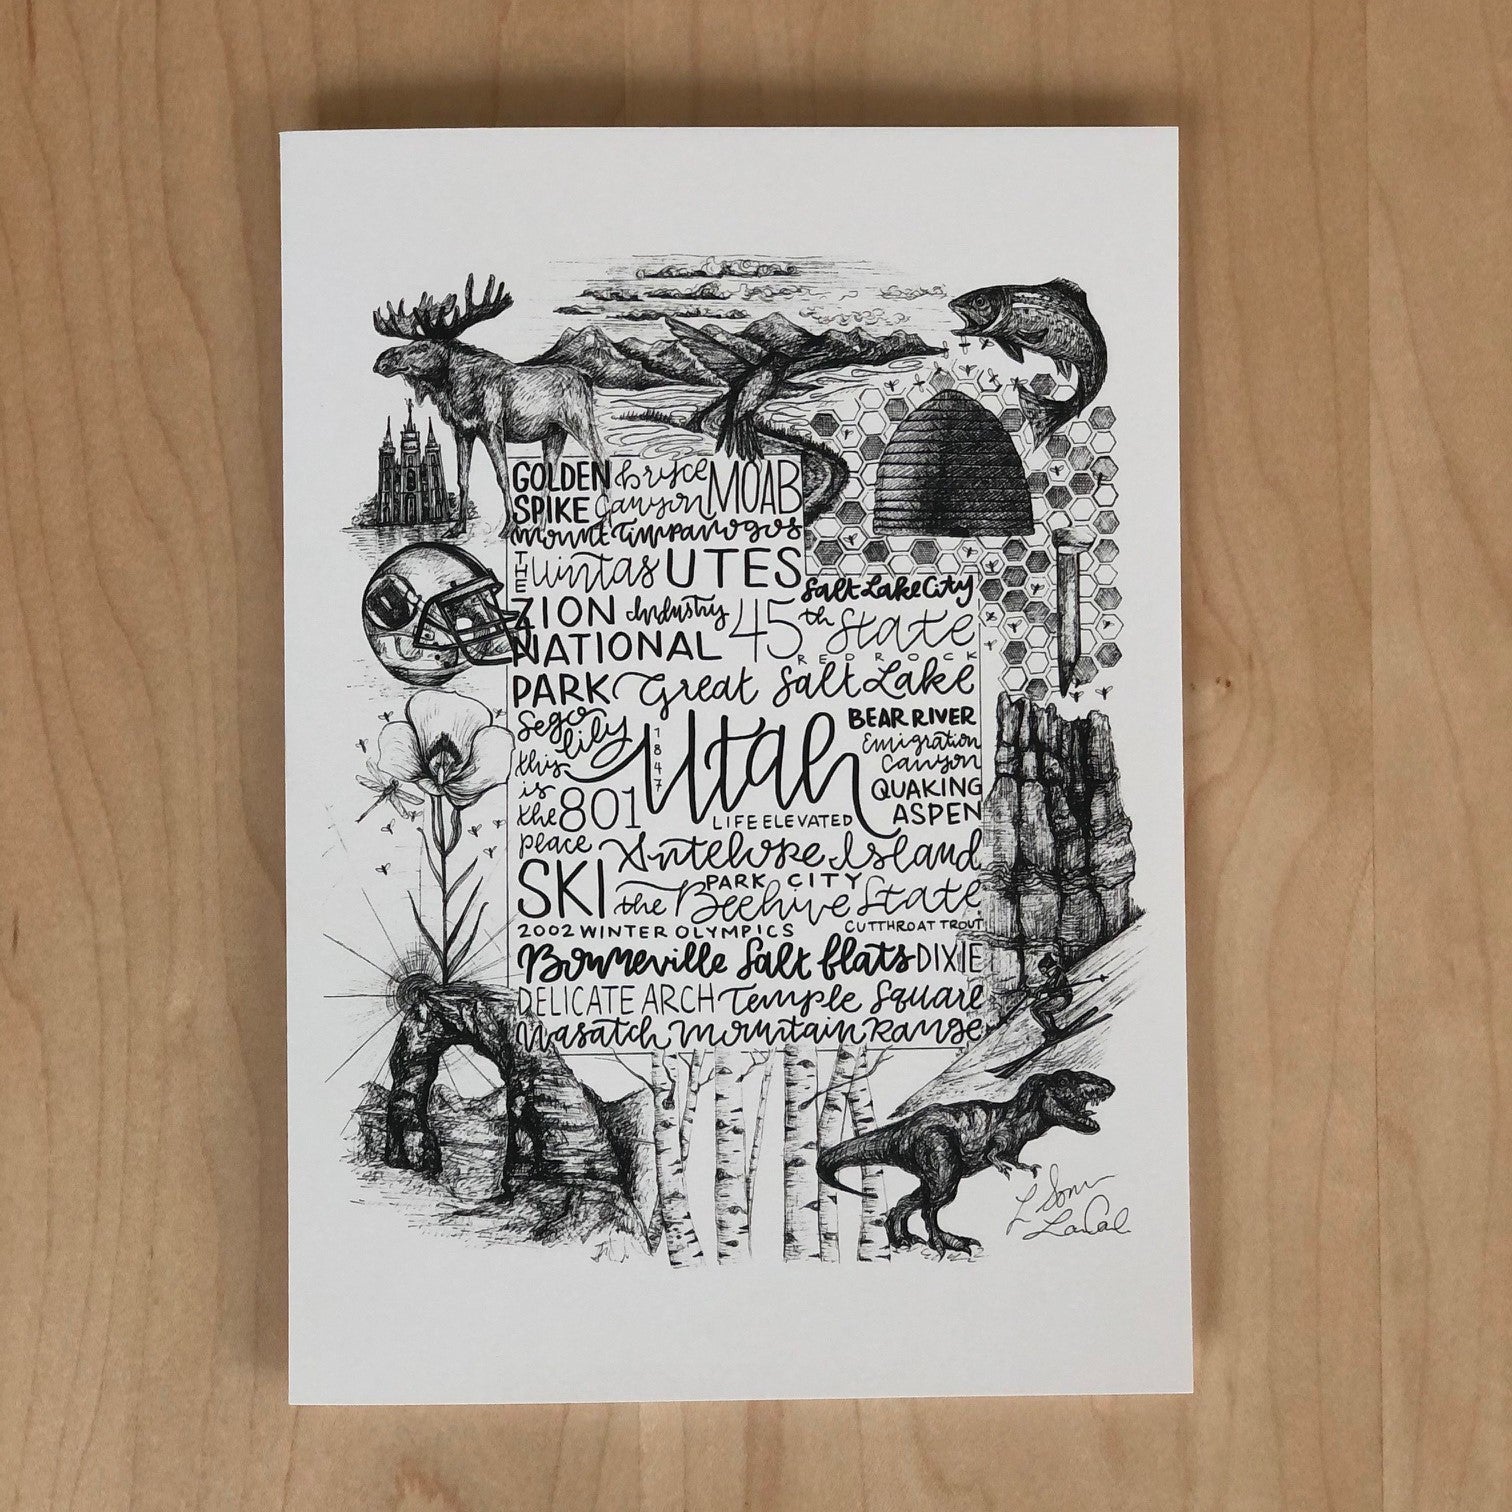 GOLDEN SPIKE Bryce Canyon MOAB
Mount Timpanogos
THE Uintas UTES
Salt Lake City
ZION NATIONAL PARK Industry 45th State
REDROCK
Great Salt Lake
Sego lily
1847
Utah
BEAR RIVER
Emigration Canyon
this is the place
801
LIFE ELEVATED
QUAKING ASPEN
Antelope Island
SKI
PARK CITY
the Beehive State
2002 WINTER OLYMPICS
CUTTHROAT TROUT
Bonneville Salt flats DIXIE
DELICATE ARCH Temple Square
Wasatch Mountain Range